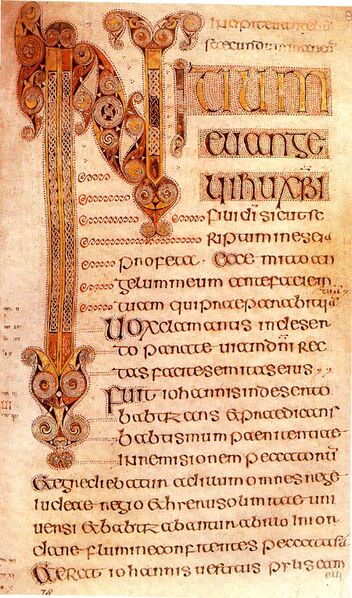 INITIUM
euange
lii ihu xpi
filii di sicut sc
riptum in eseia
profeta ecce mitto an
gelum meum ante faciem
tuam qui praeparabit uiam
uox clamantis in deser
to parate uiam dni rec
tas facite semitas eius
fuit iohannis in deserto
babtizans & praedicans
babtismum paenitentiae
in remisionem peccatorum
& egrediebatur ad illum omnes
iudeae regio & hierusolimitae uni
uersi & babtizabantur ab illo in ior
dane flumine confitentes peccata sua
& erat iohannis uestitus pilis cam